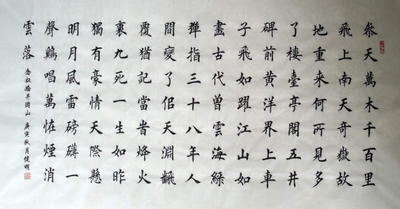 參天萬木千百里
飛上南天奇嶽故
地重來何所見多
了樓臺亭閣五井
碑前黃洋界上車
子飛如躍江山如
畫古代曾雲海綠
彈指三十八年人
間變了佀天淵飜
覆猶記當旹烽火
裏九死一生如昨
獨有豪情天際懸
明月風雷磅礴一
聲鷄唱萬怪煙消
雲落
念奴嬌井岡山 庚寅秋月健